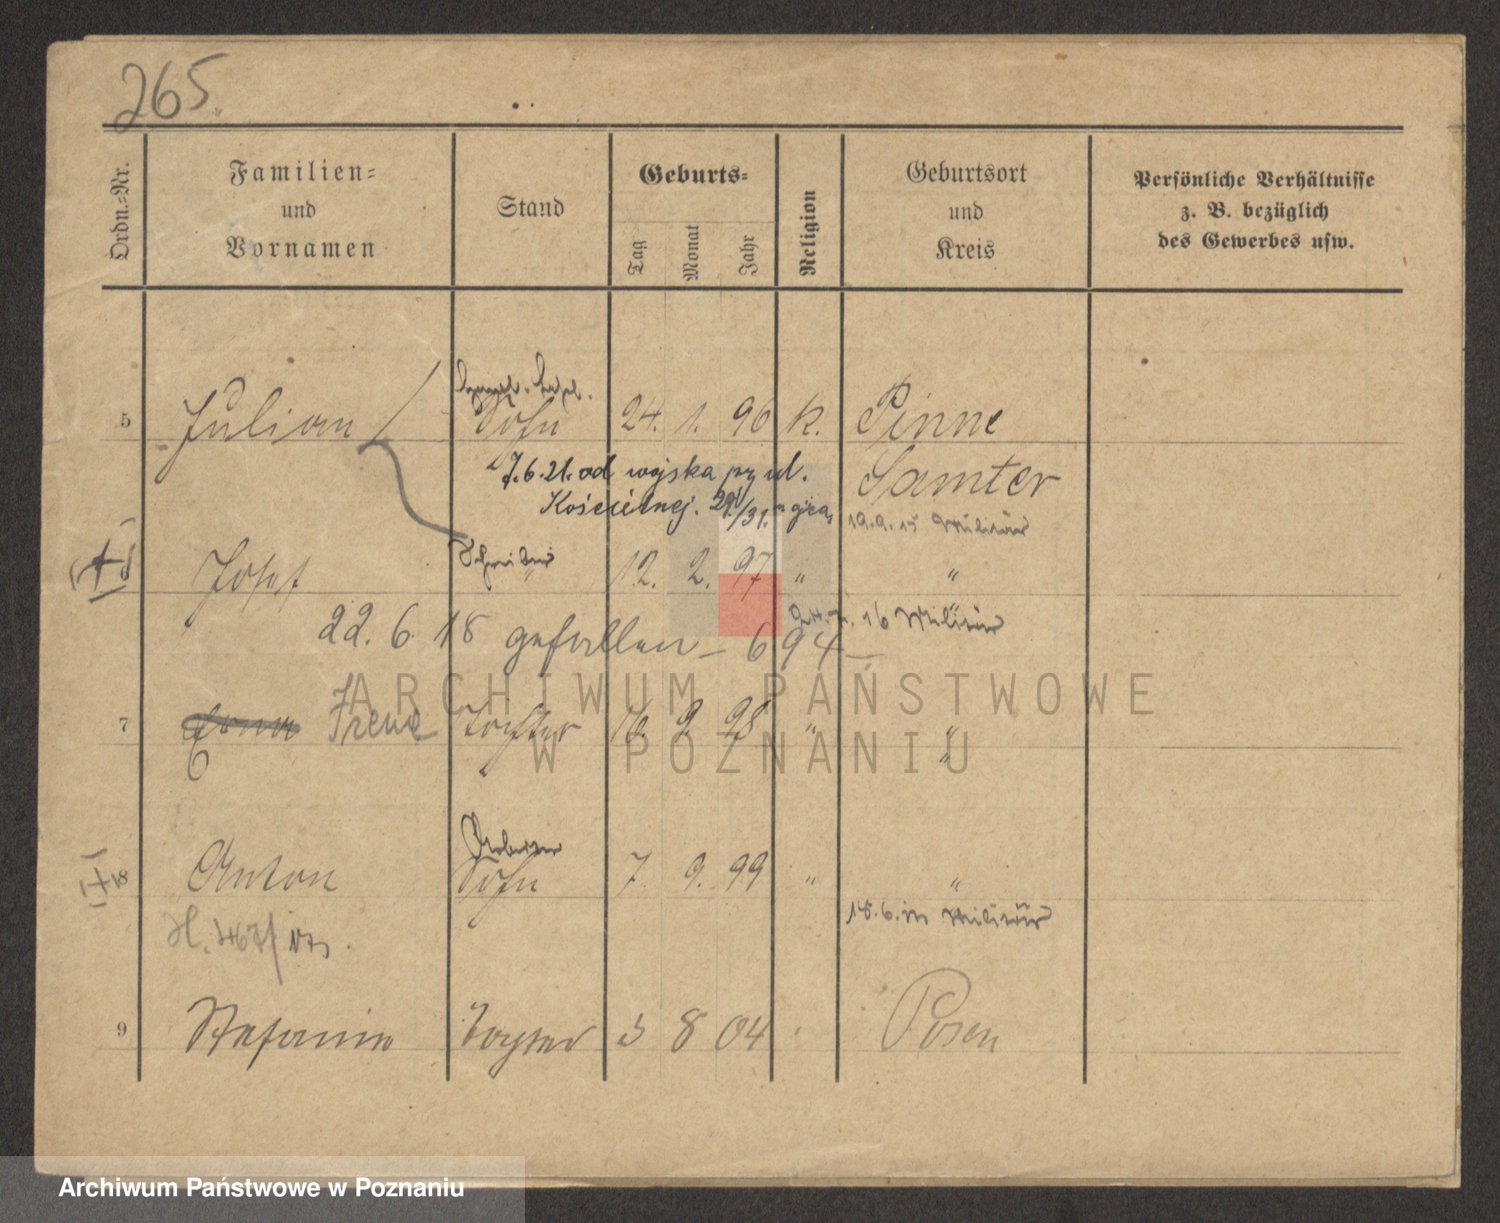 265.
Ordn.-Nr.
Familien-
und
Vornamen
Stand
Geburts-
Tag
Monat
Jahr
Religion
Geburtsort
und
Kreis
Persönliche Verhältnisse
z. B. bezüglich
des Gewerbes usw.
5 Julian Sohn 24. 1. 96 k. Pinne
7.6.21. od wojska przy ul. Samter
Kościelnej. 19.9.15 Militär
6 Josef Schreiber " 12. 2. 97 " "
24. 16 Militär
22. 6. 18 gefallen – 694 –
7 Irene Tochter 16. 9. 98 " "
"
Arbeiter
8 Anton Sohn 7. 9. 99 " "
18.6. Militär
9 Stefanie Tochter 3 8 04 " Posen
ARCHIWUM PAŃSTWOWE
W POZNANIU
Archiwum Państwowe w Poznaniu